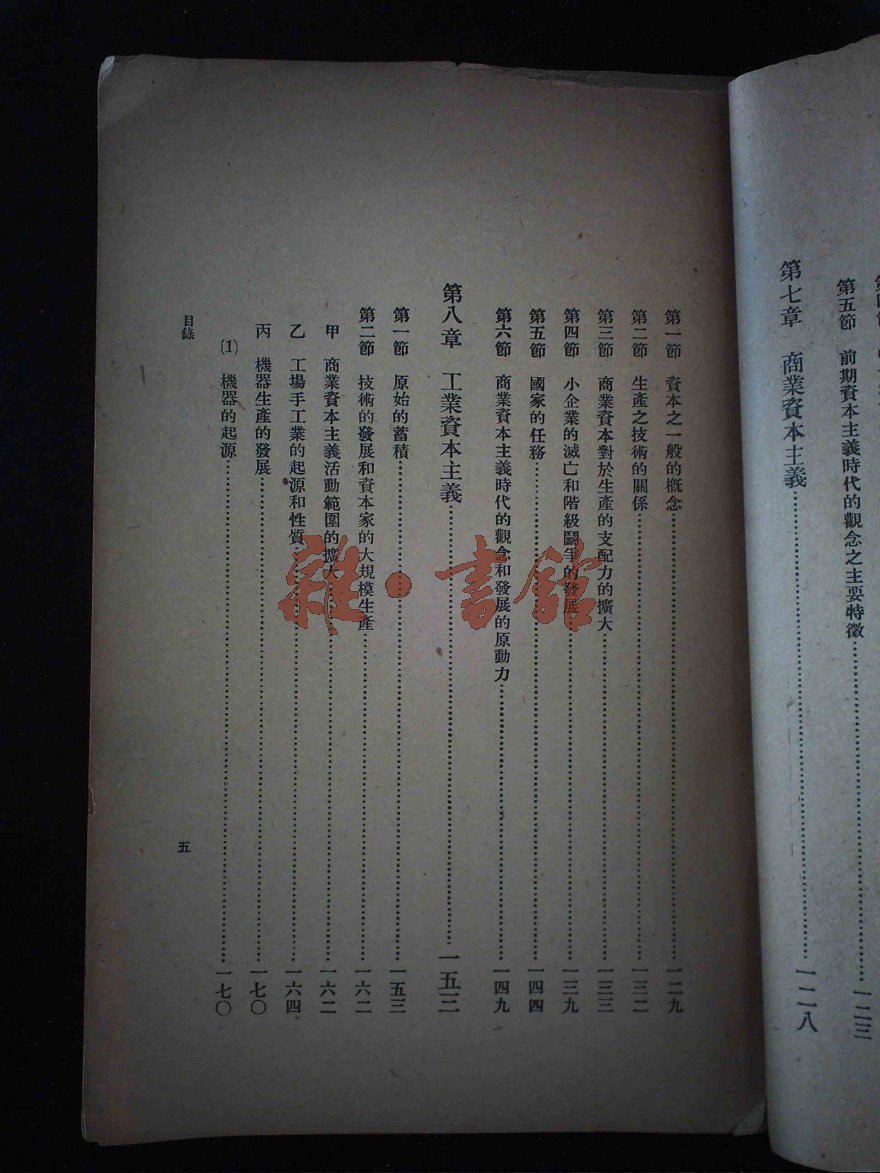 第五節　前期資本主義時代的觀念之主要特徵……一二三
第七章　商業資本主義……一二八
第一節　資本之一般的概念……一二九
第二節　生產之技術的關係……一三二
第三節　商業資本對於生產的支配力的擴大……一三三
第四節　小企業的滅亡和階級鬭爭的發展……一三九
第五節　國家的任務……一四四
第六節　商業資本主義時代的觀念和發展的原動力……一四九
第八章　工業資本主義……一五三
第一節　原始的蓄積……一五三
第二節　技術的發展和資本家的大規模生產……一六二
甲　商業資本主義活動範圍的擴大……一六二
乙　工場手工業的起源和性質……一六四
丙　機器生產的發展……一七〇
(1)　機器的起源……一七〇
目錄
五
雜·書館